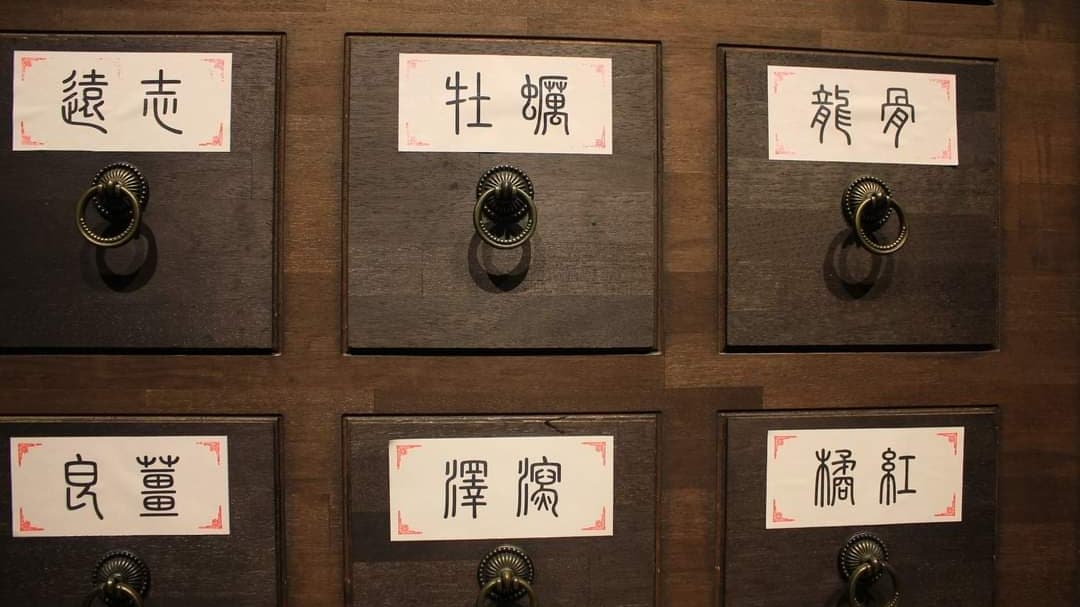 遠志
牡蠣
龍骨
良薑
澤瀉
橘紅